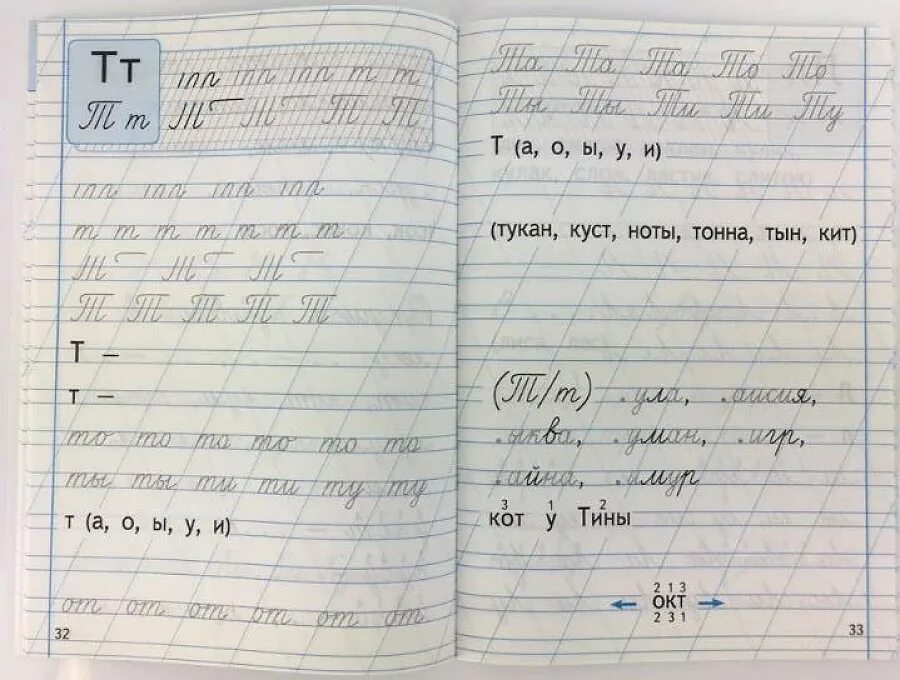 Тт
Т т
т т
Т Т
т т т т т т т
Т Т Т Т Т
Т –
т –
то то то то то то
ты ты ти ти ту ту
т (а, о, ы, у, и)
от от от от от от
32
Та Та Та То То
Ты Ты Ти Ти Ту
Т (а, о, ы, у, и)
(тукан, куст, ноты, тонна, тын, кит)
(Т/т) .ула, .аисия,
.ыква, .уман, .игр,
.айна, .имур
3 1 2
кот у Тины
2 1 3
ОКТ
2 3 1
33